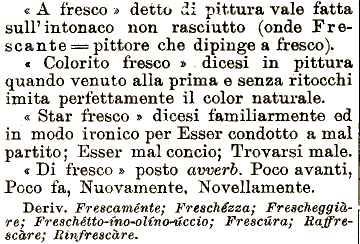 « A fresco » detto di pittura vale fatta
sull'intonaco non rasciutto (onde Fre-
scante = pittore che dipinge a fresco).
« Colorito fresco » dicesi in pittura
quando venuto alla prima e senza ritocchi
imita perfettamente il color naturale.
« Star fresco » dicesi familiarmente ed
in modo ironico per Esser condotto a mal
partito; Esser mal concio; Trovarsi male.
« Di fresco » posto avverb. Poco avanti,
Poco fa, Nuovamente, Novellamente.
Deriv. Frescaménte; Freschézza; Frescheggià-
re; Freschétto-íno-olíno-úccio; Frescúra; Raffre-
scàre; Rinfrescàre.